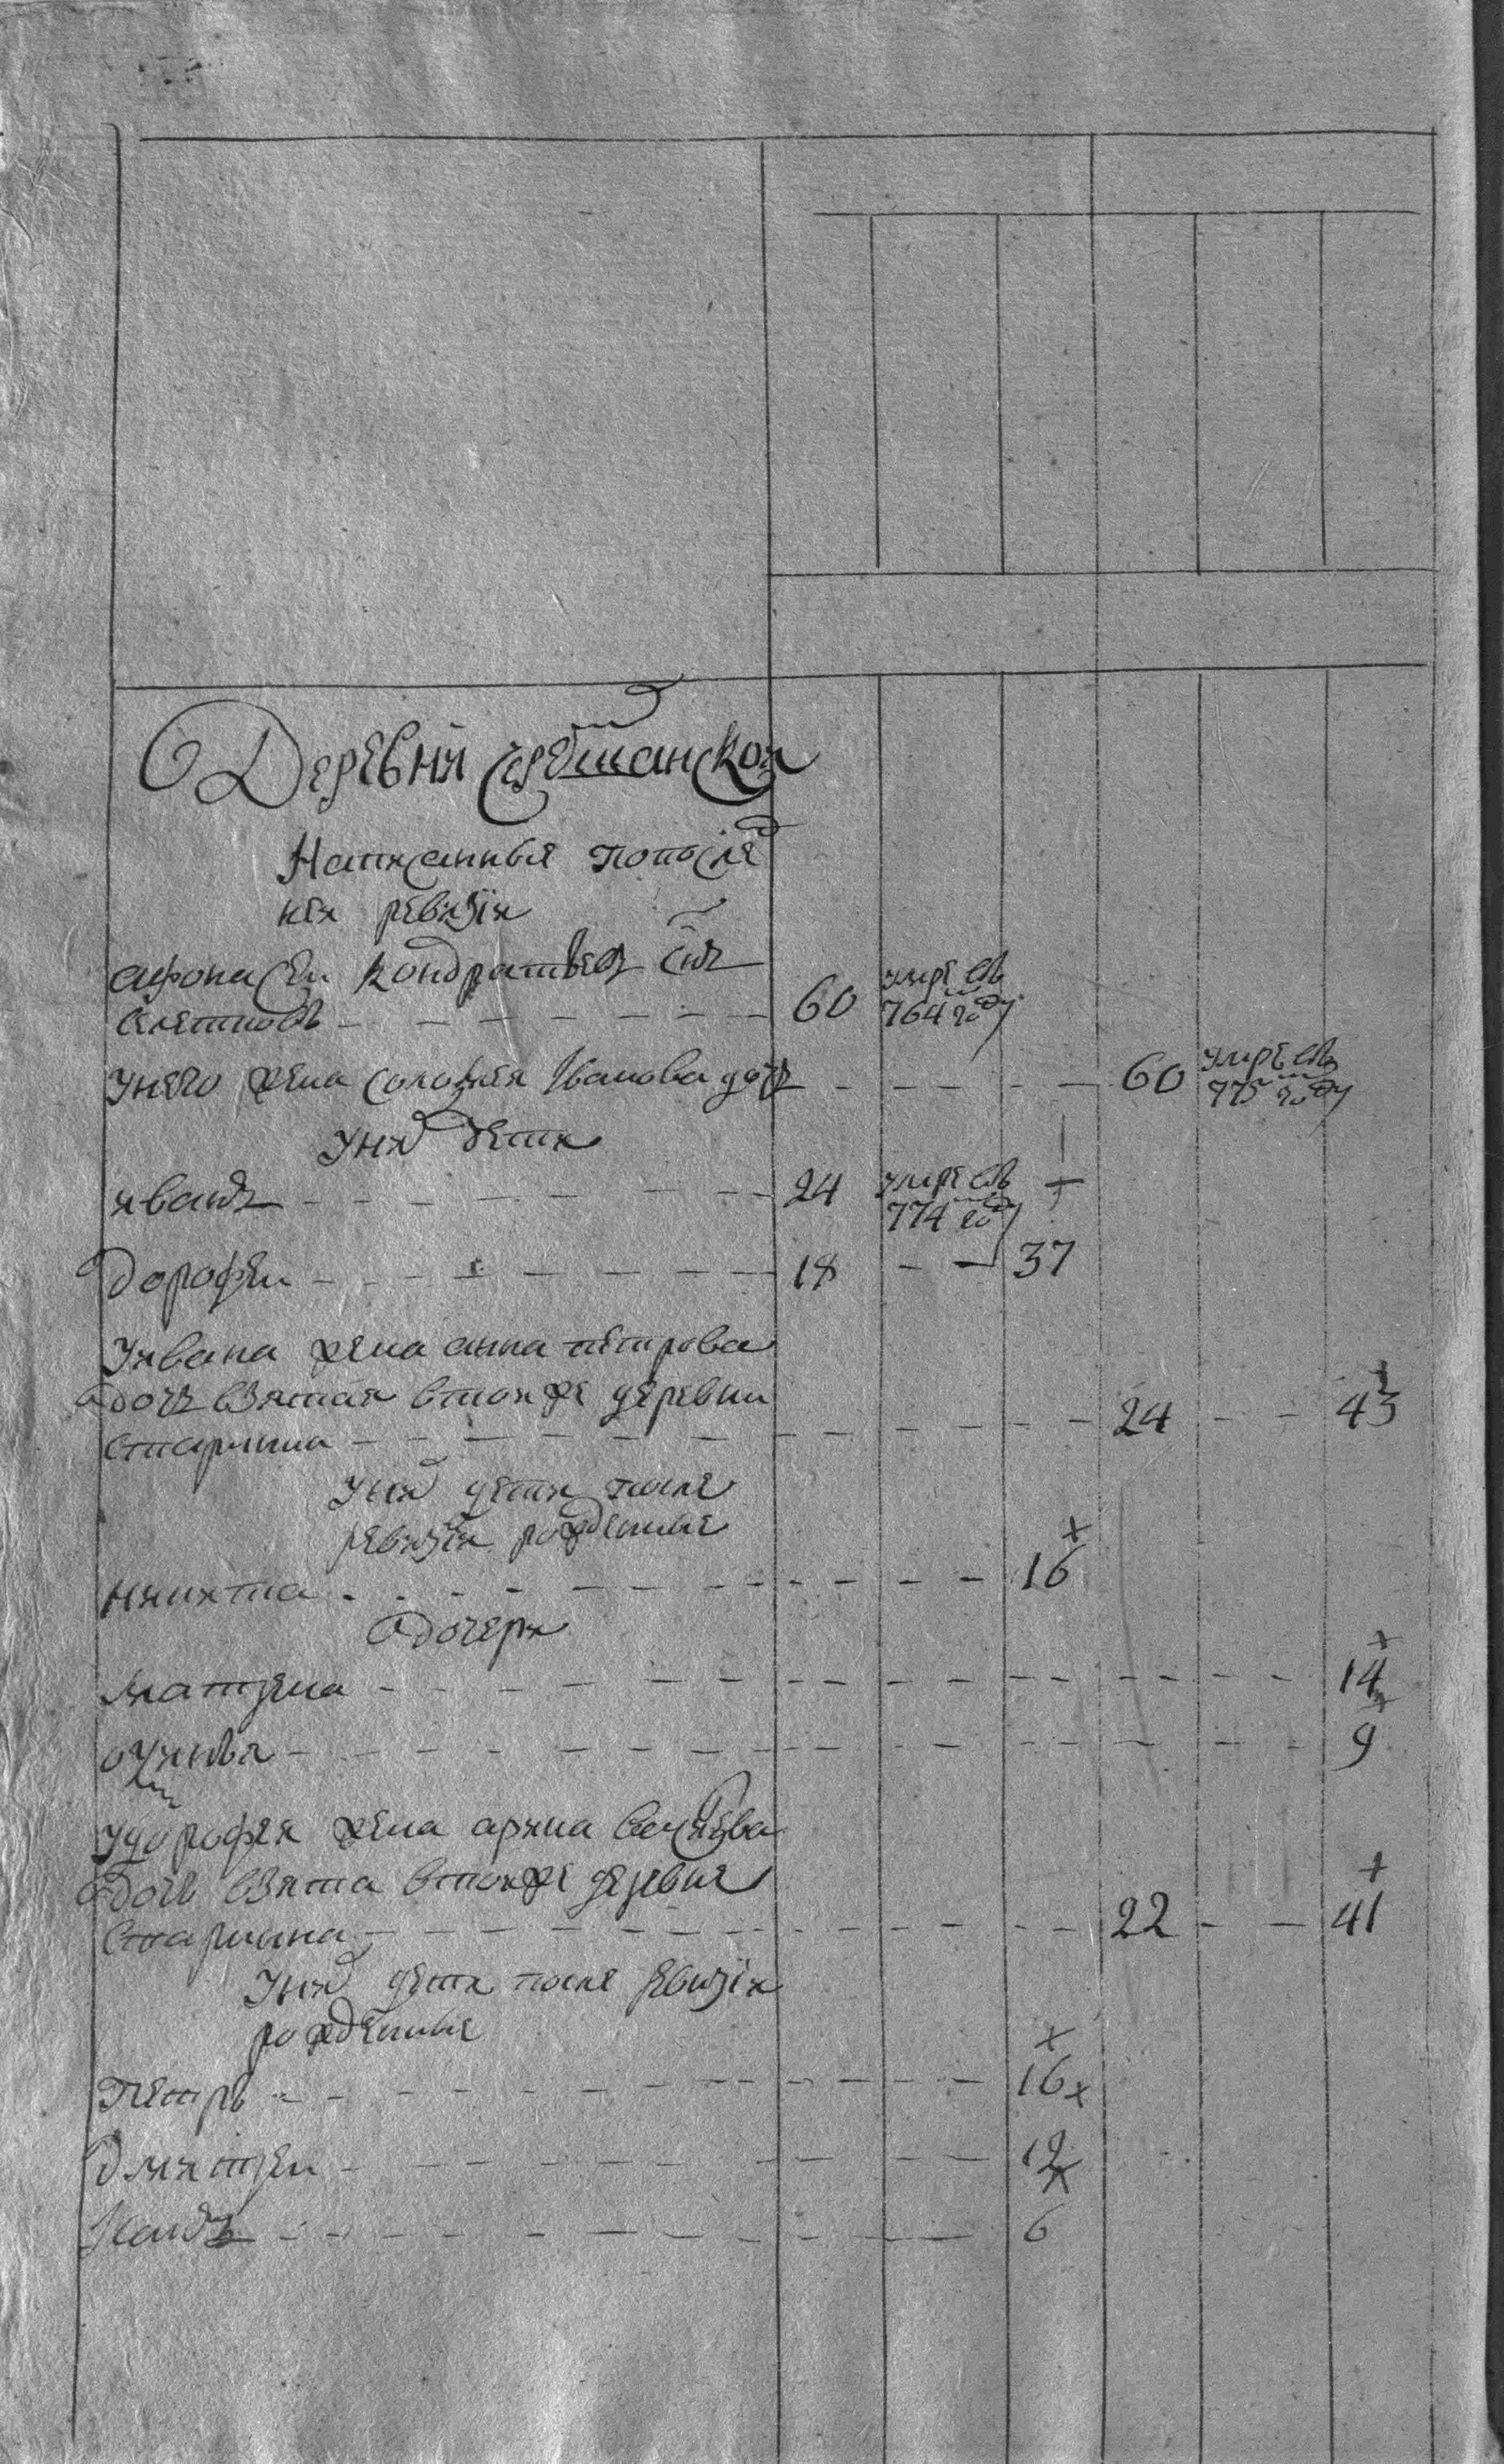 Деревня
Написанныя попослѣд
ней ревизiи
афонасеи кондратьевъ снъ
60 умре въ
764 году
унего жена соломея Иванова дочь 60 умре въ
775 году
уних дети
иванъ 24 умре въ +
774 году
дорофеи 18 37
уивана жена анна петрова
дочь взятая втои же деревни
старинна 24 43
уних дети после
ревизiи рожденные
никита 16 +
дочери
матрена 14 +
9
удорофея жена арина
дочь взята втои же деревне
старинна 22 41 +
уних дети после ревизiи
рожденные
петръ 16 +
дмитреи 12 +
6